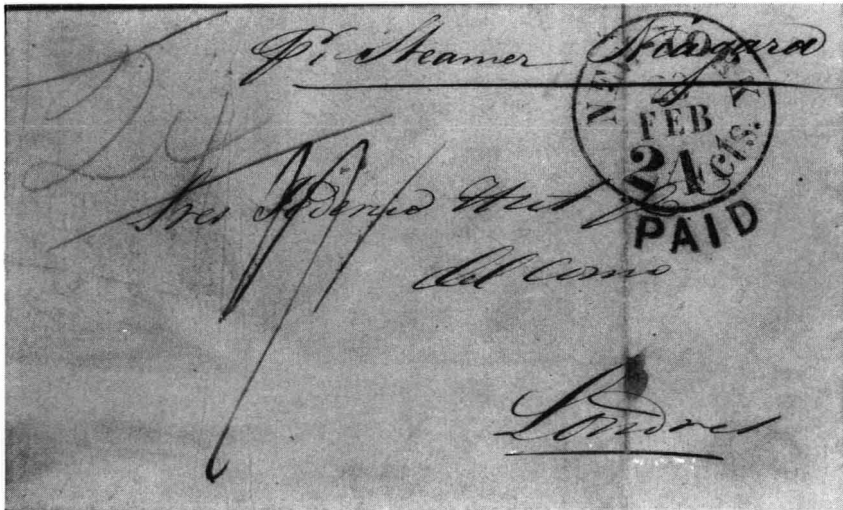 pr Steamer Niagara
NEW YORK
FEB
24 cts.
PAID
24
Sres Federico Huth
del Como
Londres